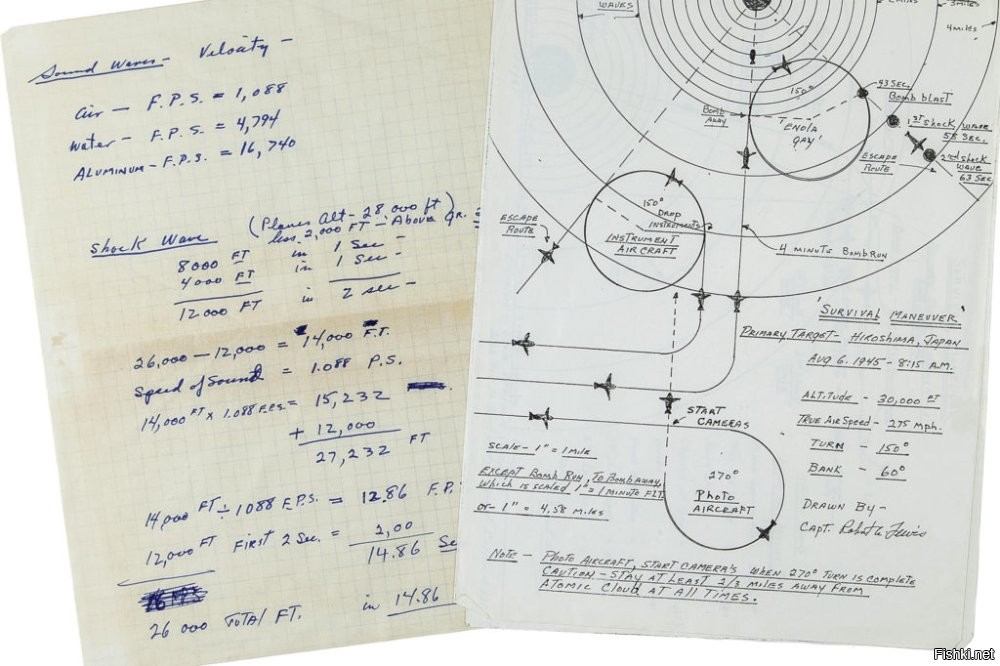 Sound Waves - Velocity -
Air - F.P.S. = 1,088
Water - F.P.S. = 4,794
ALUMINUM - F.P.S. = 16,740
(Planes Alt - 28,000 ft)
less 2,000 FT - Above Gr.
Shock Wave
8000 FT in 1 Sec -
4000 FT in 1 Sec -
12000 FT in 2 sec -
26,000 - 12,000 = 14,000 F.T.
Speed of Sound = 1.088 P.S.
14,000 FT x 1.088 F.P.S. = 15,232
+ 12,000
27,232 FT
14,000 FT ÷ 1088 F.P.S. = 12.86 F.P.
12,000 FT First 2 Sec. = 2,00
14.86 Se
26 000 TOTAL FT. in 14.86
WAVES
2 MILES
3 MILES
4 MILES
43 SEC.
Bomb blast
150°
BOMB
AWAY
"ENOLA
GAY"
1ST SHOCK WAVE
58 SEC.
2nd SHOCK
WAVE
63 SEC
ESCAPE
ROUTE
150°
DROP
INSTRUMENTS
INSTRUMENT
AIRCRAFT
ESCAPE
ROUTE
4 MINUTE BOMB RUN
'SURVIVAL MANEUVER'
PRIMARY TARGET - HIROSHIMA, JAPAN
AUG 6. 1945 - 8:15 A.M.
ALTITUDE - 30,000 FT
TRUE AIR SPEED - 275 mph.
TURN - 150°
BANK - 60°
DRAWN BY -
CAPT. Robert A. Lewis
START
CAMERAS
270°
PHOTO
AIRCRAFT
SCALE - 1" = 1 MILE
EXCEPT BOMB RUN, TO BOMB AWAY,
WHICH IS SCALED 1" = 1 MINUTE FLT.
OR - 1" = 4.58 MILES
NOTE - PHOTO AIRCRAFT, START CAMERA'S WHEN 270° TURN IS COMPLETE
CAUTION - STAY AT LEAST 2/3 MILES AWAY FROM
ATOMIC CLOUD AT ALL TIMES.
Fishki.net